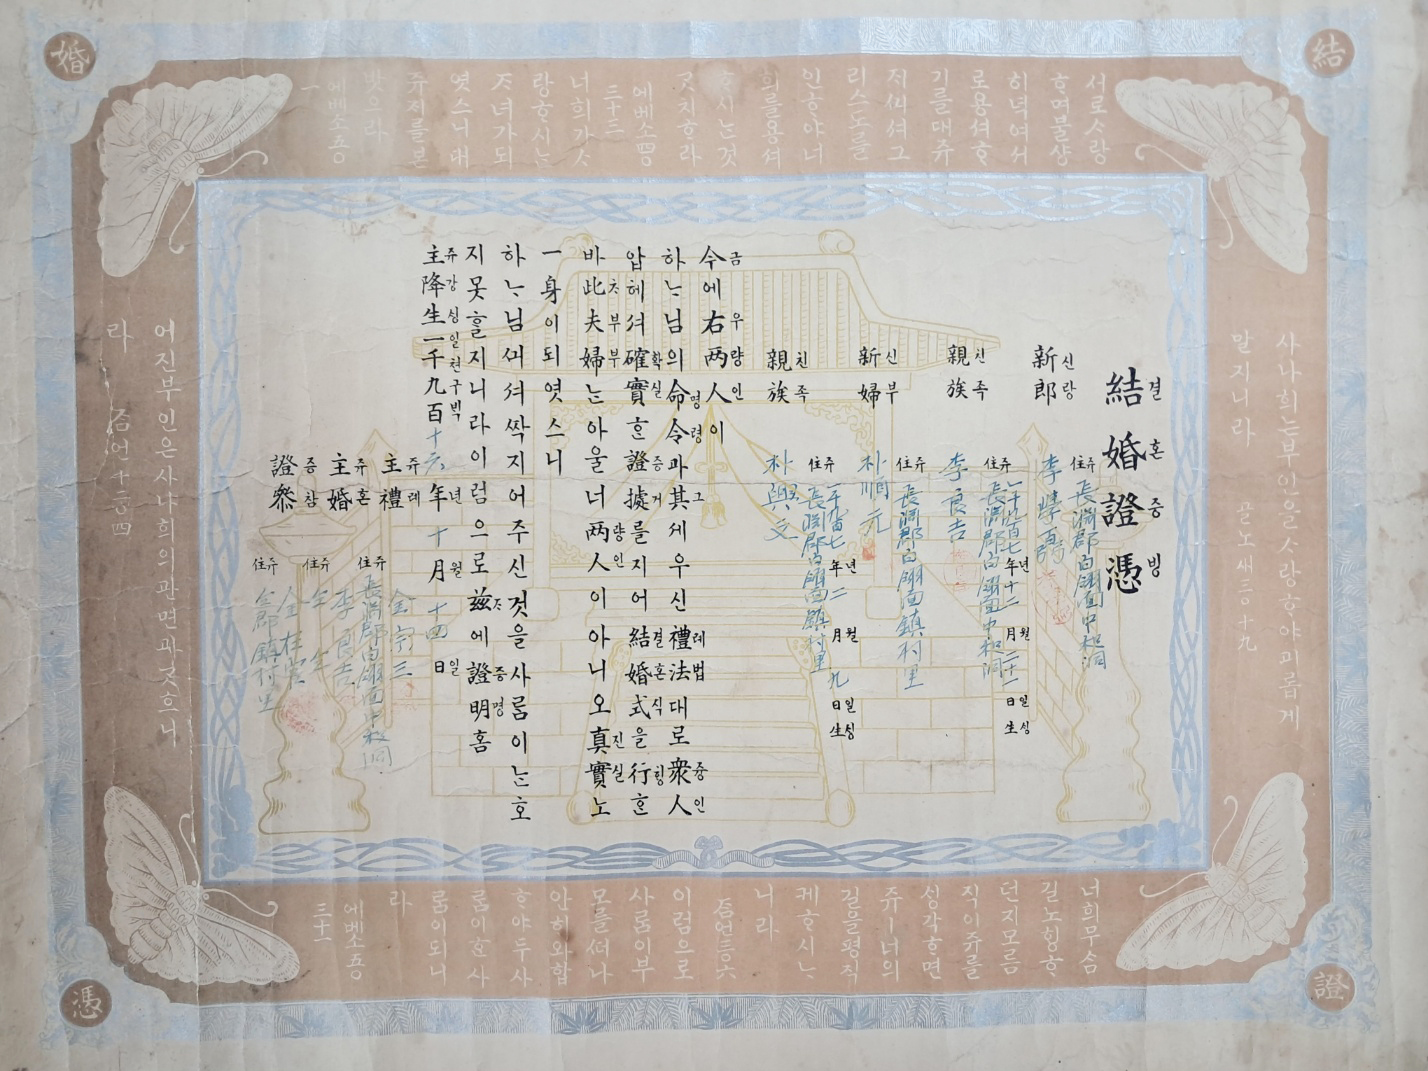 結
婚
證
憑
서로 ᄉᆞ랑
ᄒᆞ며 불샹
히 녁여 서
로 용셔ᄒᆞ
기를 대쥬
저씨셔 그
리스도를
인ᄒᆞ야 너
희를 용셔
ᄒᆞ시ᄂᆞᆫ 것
ᄀᆞᆺ치 ᄒᆞ라
에베소四〇
三十三
너희가 ᄉᆞ
랑ᄒᆞ시ᄂᆞᆫ
ᄌᆞ녀가 되
엿스니 대
쥬저를 본
밧으라
에베소五〇
一
사나희ᄂᆞᆫ 부인을 ᄉᆞ랑ᄒᆞ야 괴롭게
말지니라 골노새三〇十九
結婚證憑
결혼증빙
新郎 신랑
住 쥬 長淵郡白翎面中和洞
親族 친족
李良吉
住 쥬 長淵郡白翎面中和洞
一千九百七年 년 十二月 월 二十一日 일 生 싱
新婦 신부
朴順元
住 쥬 長淵郡白翎面鎭村里
親族 친족
朴興文
住 쥬 長淵郡白翎面鎭村里
年 년 二月 월 九日 일 生 싱
今에 右 兩人이
금 우 량인
하ᄂᆞ님의 命令과 其 세우신 禮法대로 衆人
명령 그 례법 즁인
압헤셔 確實ᄒᆞᆫ 證據를 지어 結婚式을 行ᄒᆞᆫ
확실 증거 결혼식 ᄒᆡᆼ
바 此 夫婦ᄂᆞᆫ 아울너 兩人이 아니오 真實노
ᄎᆞ 부부 량인 진실
一身이 되엿스니
하ᄂᆞ님ᄭᅴ셔 ᄶᅡᆨ지어 주신 것을 사ᄅᆞᆷ이 ᄂᆞᆫ호
지 못ᄒᆞᆯ지니라 이럼으로 玆에 證明홈
ᄌᆞ 증명
主降生一千九百十六年十月十四日
쥬강싱일쳔구ᄇᆡᆨ 년 월 일
主禮 쥬례
金宗三
住 쥬 長淵郡白翎面中和洞
主婚 쥬혼
李良吉
住 쥬 仝 仝
證參 증참
住 쥬 仝郡鎭村里
어진 부인은 사나희의 관면과 ᄀᆞᆺᄒᆞ니
라 ᄌᆞᆷ언十二〇四
너희 무ᄉᆞᆷ
길노 ᄒᆡᆼᄒᆞ
던지 모름
직이 쥬를
ᄉᆡᆼ각ᄒᆞ면
쥬ㅣ 너의
길을 평직
케 ᄒᆞ시ᄂᆞ
니라
ᄌᆞᆷ언三〇六
이럼으로
사ᄅᆞᆷ이 부
모를 ᄯᅥ나
안ᄒᆡ와 합
ᄒᆞ야 두 사
ᄅᆞᆷ이 ᄒᆞᆫ 사
ᄅᆞᆷ이 되니
라
에베소五〇
三十一